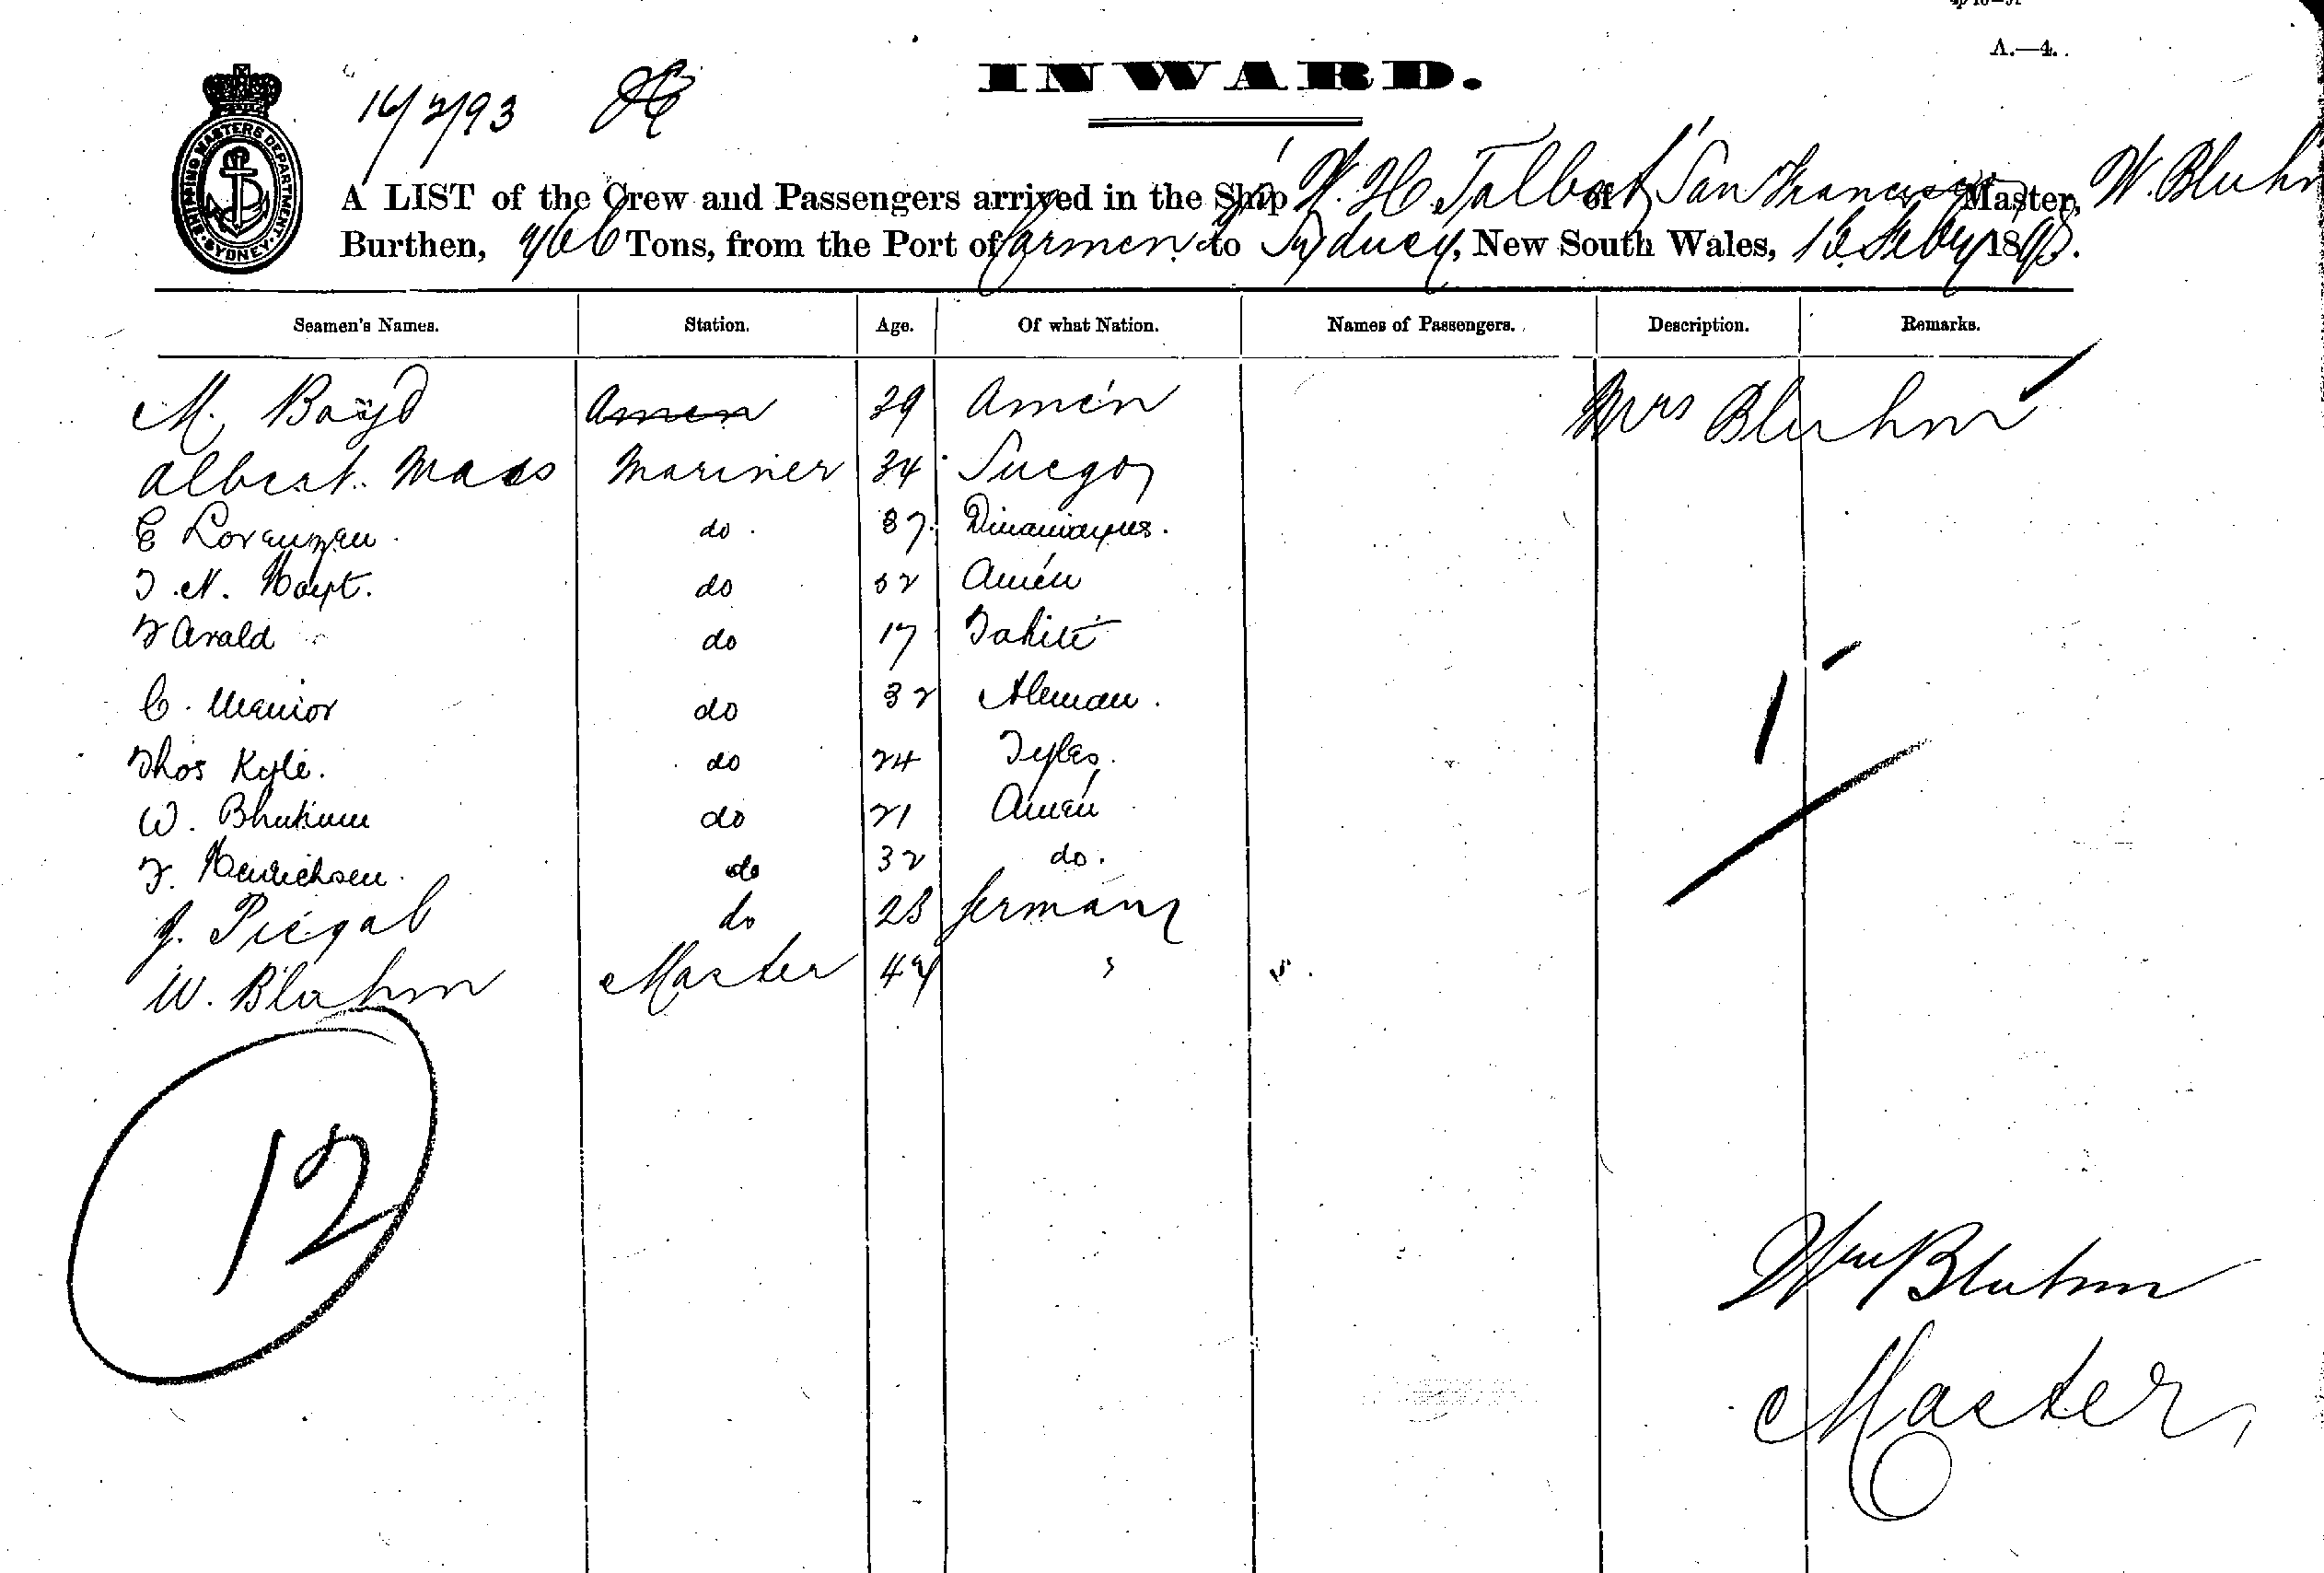 A.—4.
INWARD.
16/2/93
SHIPPING MASTERS DEPARTMENT SYDNEY
A LIST of the Crew and Passengers arrived in the Ship W. H. Talbot of San Francisco Master, W. Bluhm
Burthen, 766 Tons, from the Port of Carmen to Sydney, New South Wales, 15 Feby 1893.
Seamen's Names. Station. Age. Of what Nation. Names of Passengers. Description. Remarks.
M. Boyd Amen 39 Amén Mrs Bluhm
Albert Maas Mariner 34 Suego
C Lorenzen do 37
J. N. Hoyt. do 32 Amén
F Arald do 17 Tahiti
C. Menior do 32 Aleman.
Thos Kyle. do 24
W. do 21 Amén
F. Henrichsen. do 32 do.
J. Piegal do 23 Germany
W. Bluhm Master 47 "
1
12
Wm Bluhm
Master